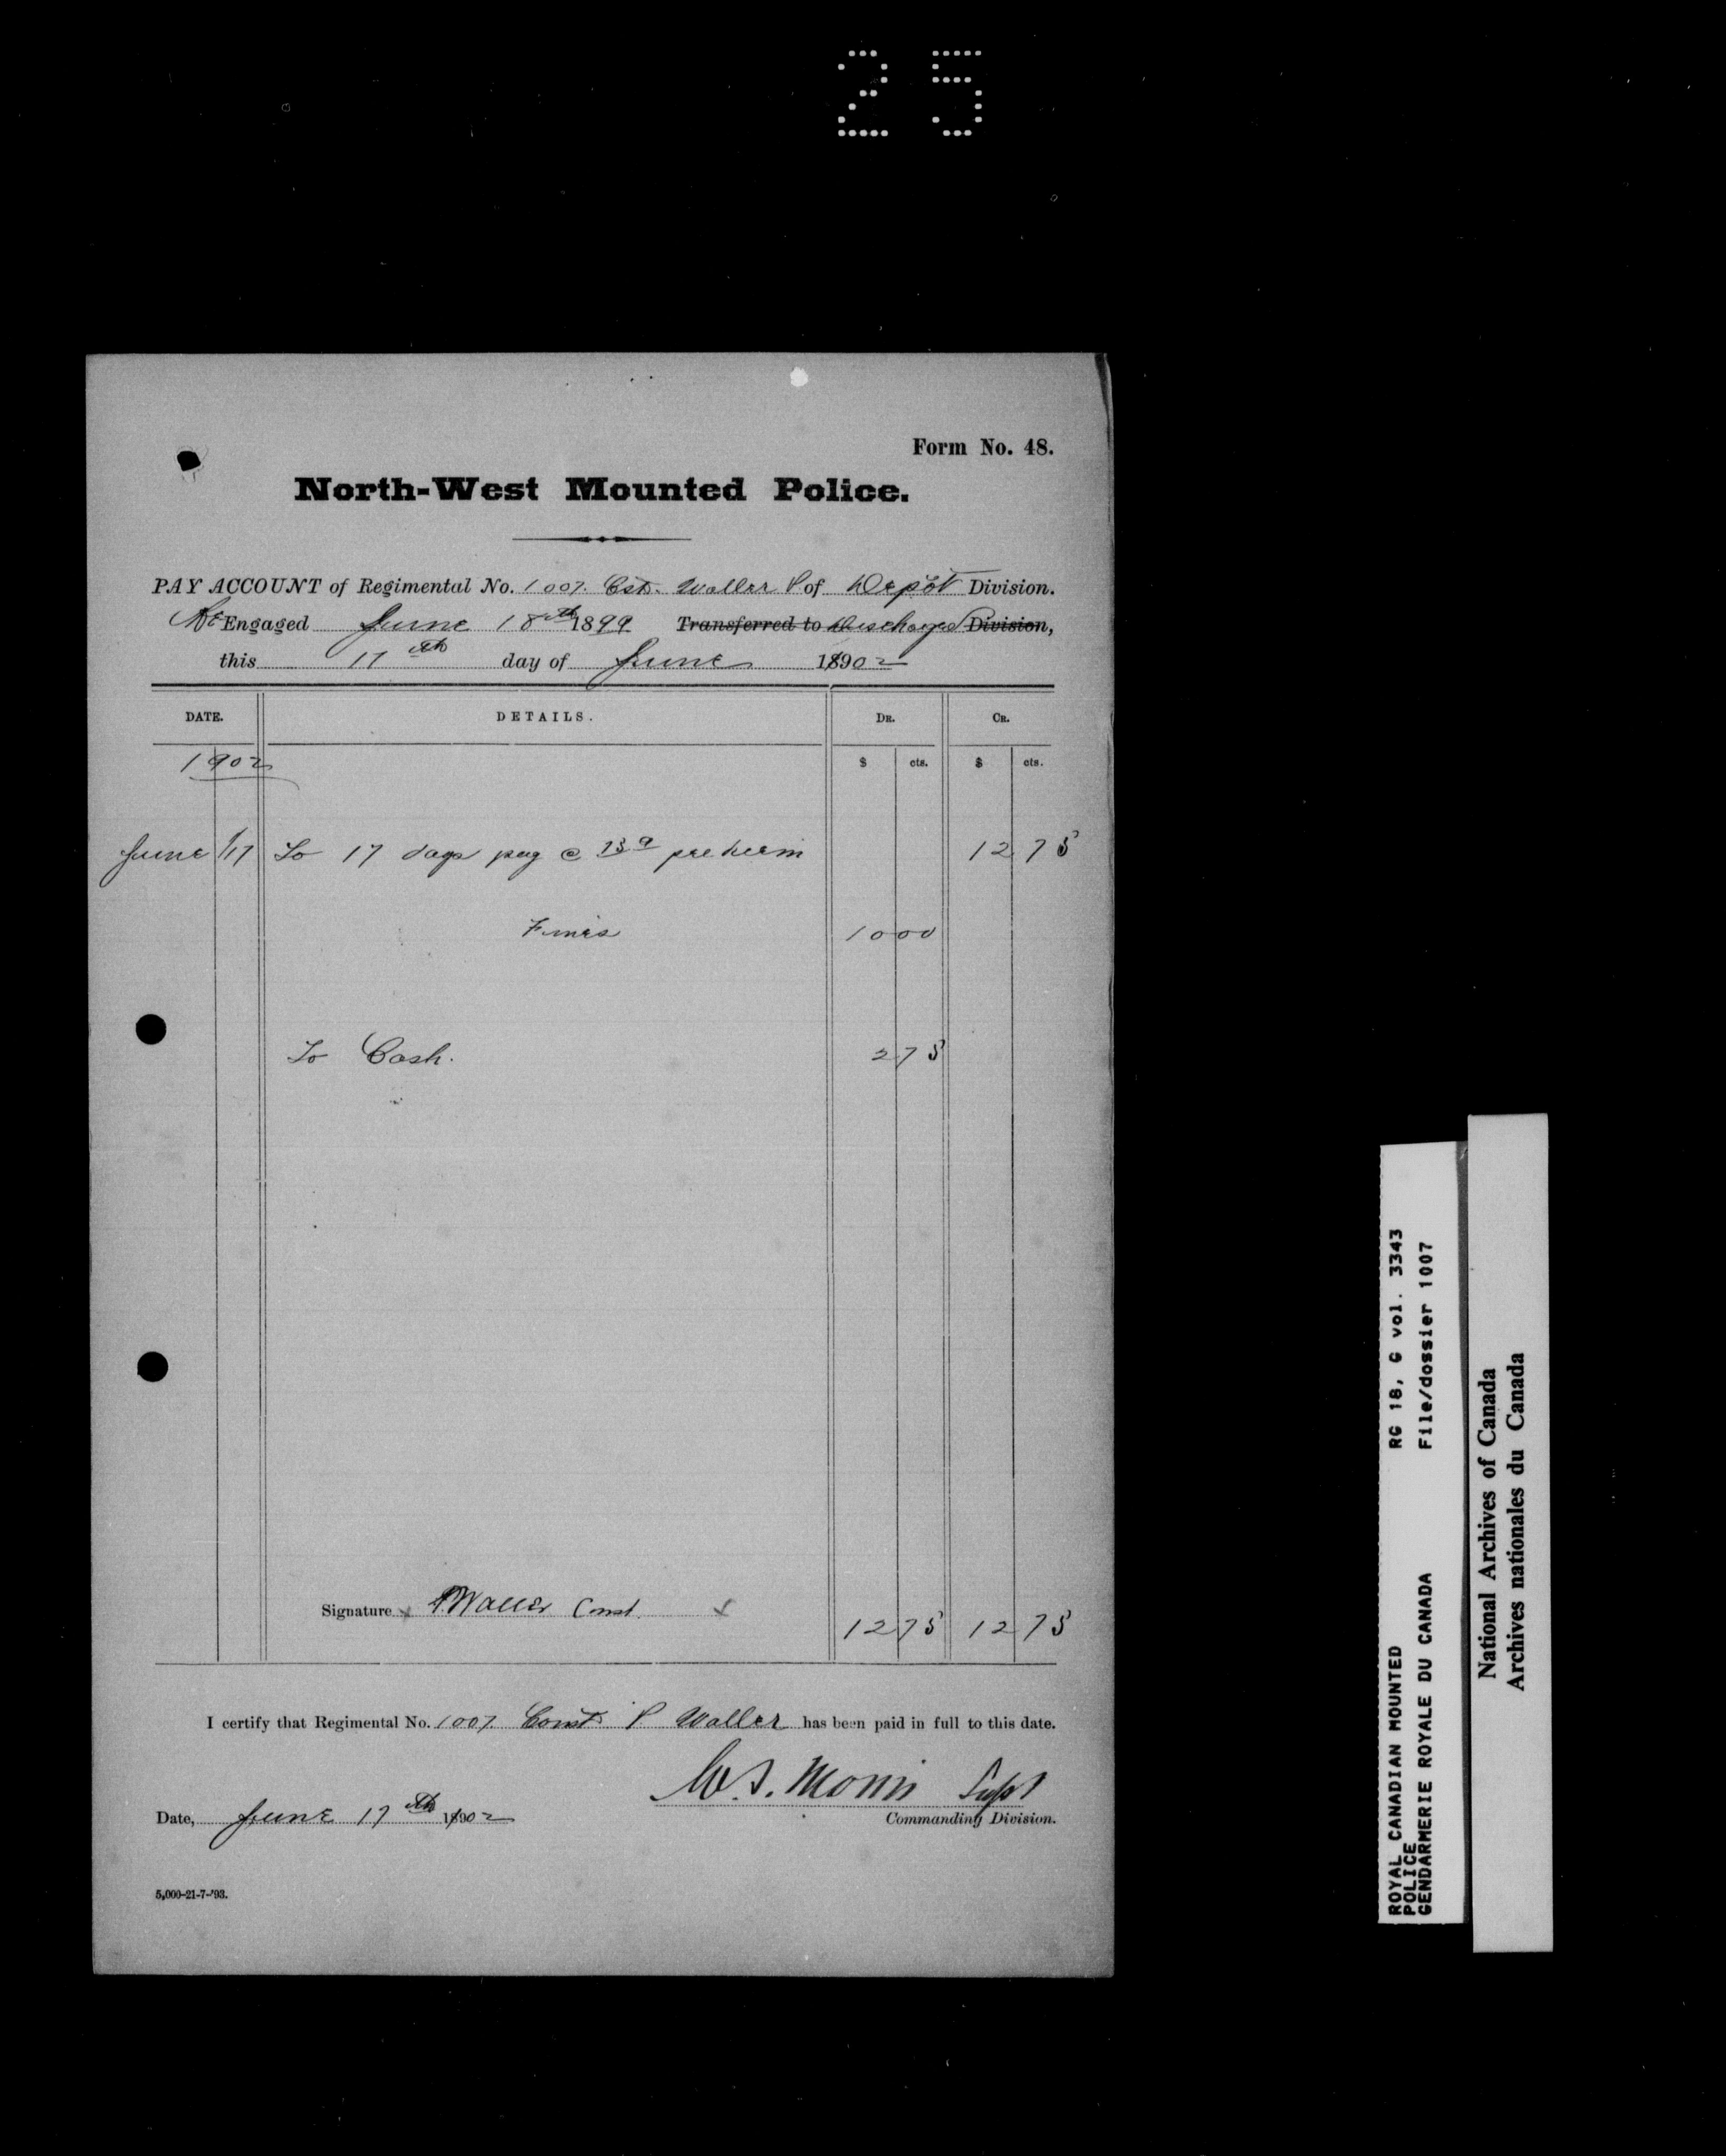 25
Form No. 48.
North-West Mounted Police.
PAY ACCOUNT of Regimental No. 1007. Cst. Waller P of Depot Division.
Re Engaged June 18th 1899 Transferred to Discharged Division,
this 17th day of June 1902
DATE. DETAILS. DR. CR.
1902 $ cts. $ cts.
June 1/17 To 17 days pay @ per diem 12 75
Fines 10 00
To Cash. 2 75
Signature x P Waller Const. x 12 75 12 75
I certify that Regimental No. 1007. Const. P Waller has been paid in full to this date.
Supt
Date, June 17th 1902 Commanding Division.
5,000-21-7-'93.
ROYAL CANADIAN MOUNTED RG 18, G vol. 3343
POLICE
GENDARMERIE ROYALE DU CANADA File/dossier 1007
National Archives of Canada
Archives nationales du Canada